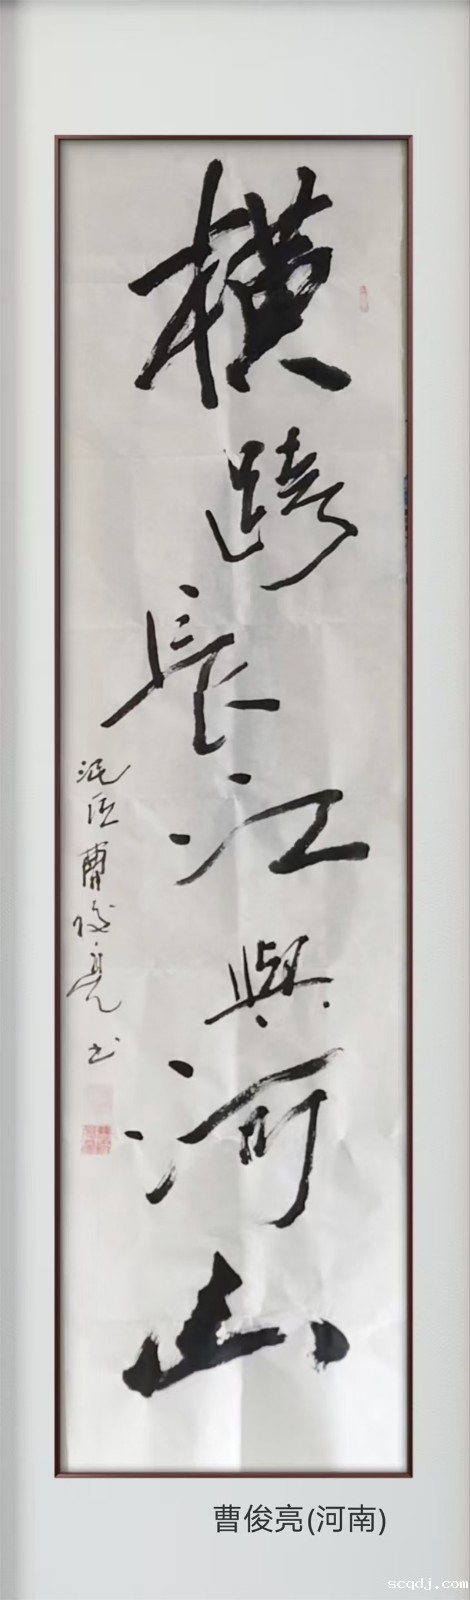 横跨長江與河山
曹俊亮书
曹俊亮(河南)
scqdj.com